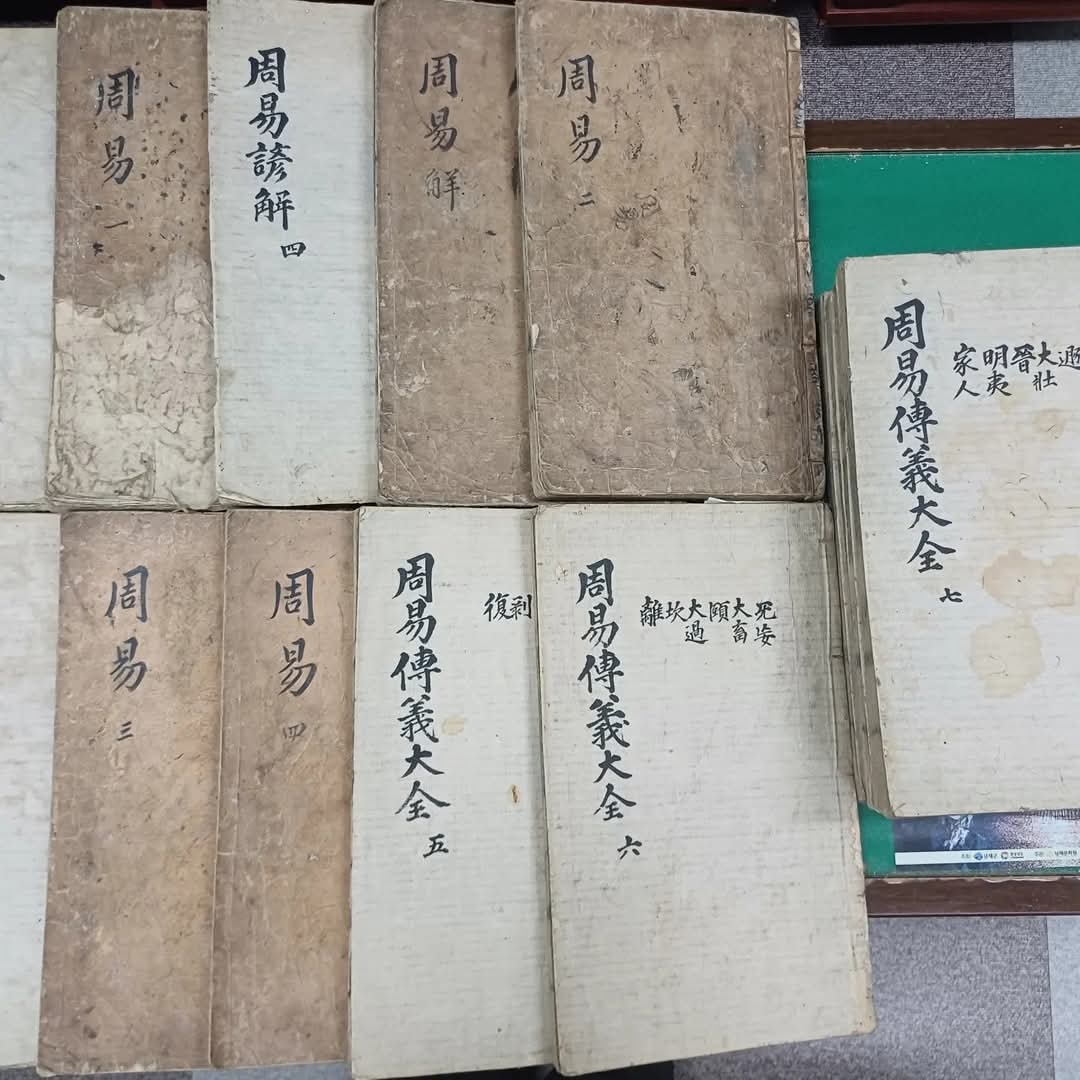 周易 一
周易諺解 四
周易 解
周易 二
周易傳義大全 七
遯
大壯
晉
明夷
家人
周易 三
周易 四
周易傳義大全 五
剥
復
周易傳義大全 六
无妄
大畜
頤
大過
坎
離